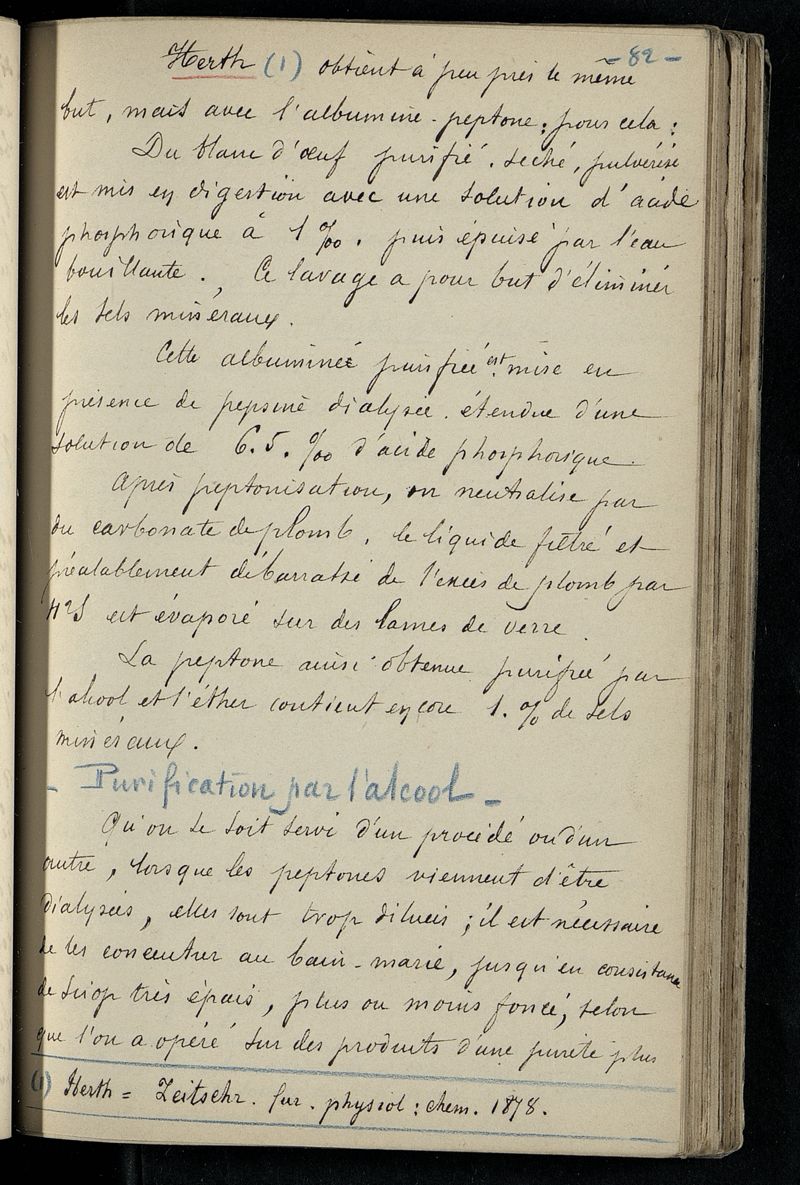 - 82 -
Herth (1) obtient à peu près le même
but, mais avec l'albumine-peptone; pour cela:
Du blanc d'œuf purifié, séché, pulvérisé
est mis en digestion avec une solution d'acide
phosphorique à 1 ‰, puis épuisé par l'eau
bouillante. Ce lavage a pour but d'éliminer
les sels minéraux.
Cette albumine purifiée est mise en
présence de pepsine dialysée étendue d'une
solution de 6.5.‰ d'acide phosphorique.
Après peptonisation, on neutralise par
du carbonate de plomb, le liquide filtré et
préalablement débarrassé de l'excès de plomb par
H²S est évaporé sur des lames de verre.
La peptone ainsi obtenue purifiée par
l'alcool et l'éther contient encore 1.% de sels
minéraux.
- Purification par l'alcool -
Qu'on se soit servi d'un procédé ou d'un
autre, lorsque les peptones viennent d'être
dialysées, elles sont trop diluées; il est nécessaire
de les concentrer au bain-marie, jusqu'en consistance
de sirop très épais, plus ou moins foncé, selon
que l'on a opéré sur des produits d'une pureté plus
(1) Herth = Zeitschr. fur. physiol: chem. 1878.